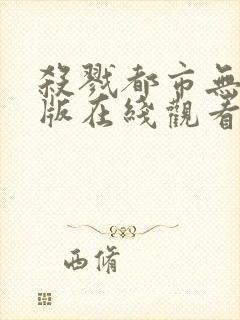 殺戮都市無
版在綫觀看
西脩